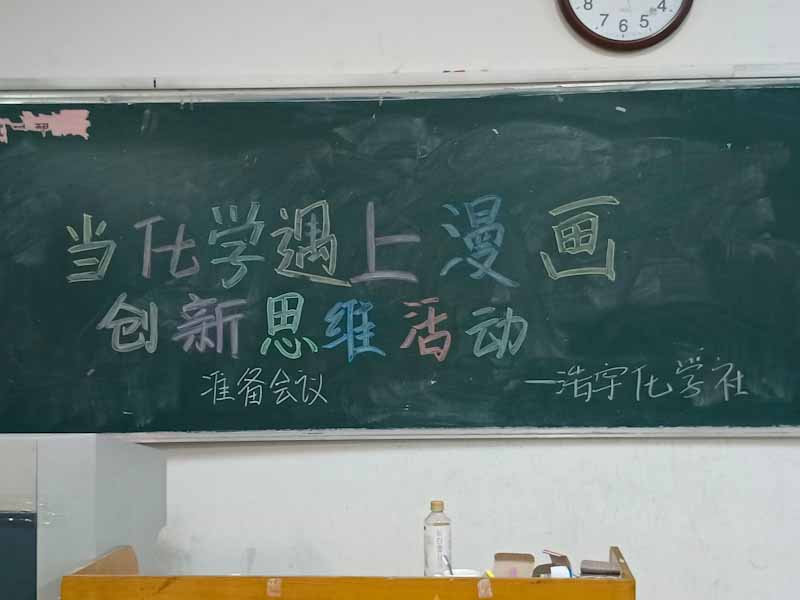 8 7 6 5 4
当化学遇上漫画
创新思维活动
准备会议
—浩宇化学社